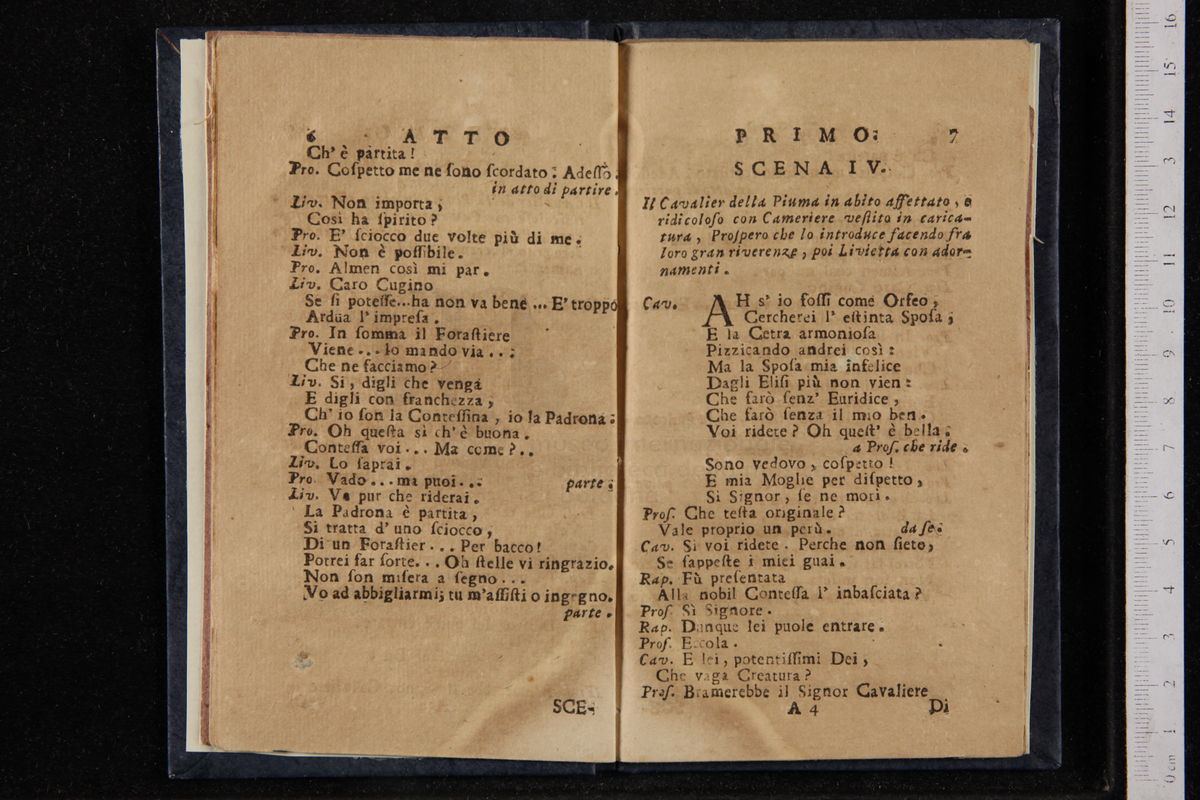 6 ATTO
Ch' è partita!
Pro. Coſpetto me ne ſono ſcordato: Adeſſo.
in atto di partire.
Liv. Non importa,
Così ha ſpirito?
Pro. E' ſciocco due volte più di me.
Liv. Non è poſſibile.
Pro. Almen così mi par.
Liv. Caro Cugino
Se ſi poteſſe...ha non va bene ... E' troppo
Ardua l' impreſa.
Pro. In ſomma il Foraſtiere
Viene... lo mando via...
Che ne facciamo?
Liv. Si, digli che venga
E digli con franchezza,
Ch' io ſon la Conteſſina, io la Padrona:
Pro. Oh queſta si ch' è buona.
Conteſſa voi... Ma come?..
Liv. Lo ſaprai.
Pro. Vado... ma puoi... parte.
Liv. Va pur che riderai.
La Padrona è partita,
Si tratta d' uno ſciocco,
Di un Foraſtier... Per bacco!
Potrei far ſorte... Oh ſtelle vi ringrazio.
Non ſon miſera a ſegno...
Vo ad abbigliarmi; tu m'aſſiſti o ingegno.
parte.
SCE-
PRIMO. 7
SCENA IV.
Il Cavalier della Piuma in abito affettato, e
ridicoloſo con Cameriere veſtito in carica-
tura, Proſpero che lo introduce facendo fra
loro gran riverenze, poi Livietta con ador-
namenti.
Cav. AH s' io foſſi come Orfeo,
Cercherei l' eſtinta Spoſa;
E la Cetra armonioſa
Pizzicando andrei così:
Ma la Spoſa mia infelice
Dagli Eliſi più non vien:
Che farò ſenz' Euridice,
Che farò ſenza il mio ben.
Voi ridete? Oh queſt' è bella.
a Proſ. che ride.
Sono vedovo, coſpetto!
E mia Moglie per diſpetto,
Si Signor, ſe ne morì.
Proſ. Che teſta originale?
Vale proprio un perù. da ſe.
Cav. Si voi ridete. Perche non ſiete,
Se ſappeſte i miei guai.
Rap. Fù preſentata
Alla nobil Conteſſa l' inbaſciata?
Proſ. Sì Signore.
Rap. Dunque lei puole entrare.
Proſ. Eccola.
Cav. E lei, potentiſſimi Dei,
Che vaga Creatura?
Proſ. Bramerebbe il Signor Cavaliere
A 4 Di
16
15
14
13
12
11
10
9
8
7
6
5
4
3
2
1
0 cm